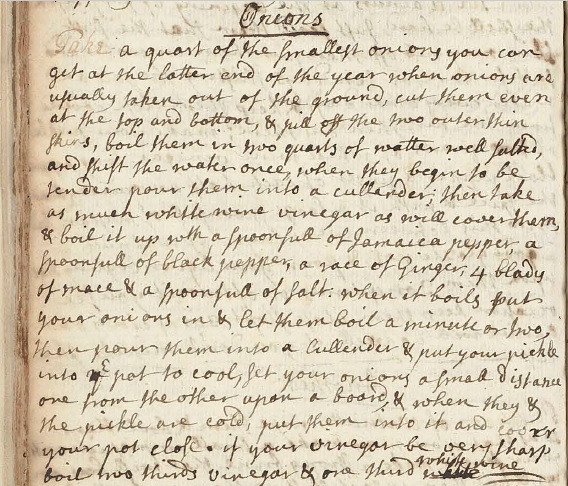 Onions
Take a quart of the smallest onions you can
get at the latter end of the year when onions are
usually taken out of the ground, cut them even
at the top and bottom, & pill off the two outer thin
skins, boil them in two quarts of watter well salted,
and shift the water once, when they begin to be
tender pour them into a cullender; then take
as much white wine vinegar as will cover them,
& boil it up with a spoonfull of Jamaica pepper a
spoonfull of black pepper, a race of Ginger, 4 blads
of mace & a spoonfull of salt: when it boils put
your onions in & let them boil a minute or two,
then pour them into a Cullender & put your pickle
into ye pot to cool, set your onions a small distance
one from the other upon a board, & when they &
the pickle are cold, put them into it and
your pot close. if your vinegar be very sharp
boil two thirds vinegar & one third white wine